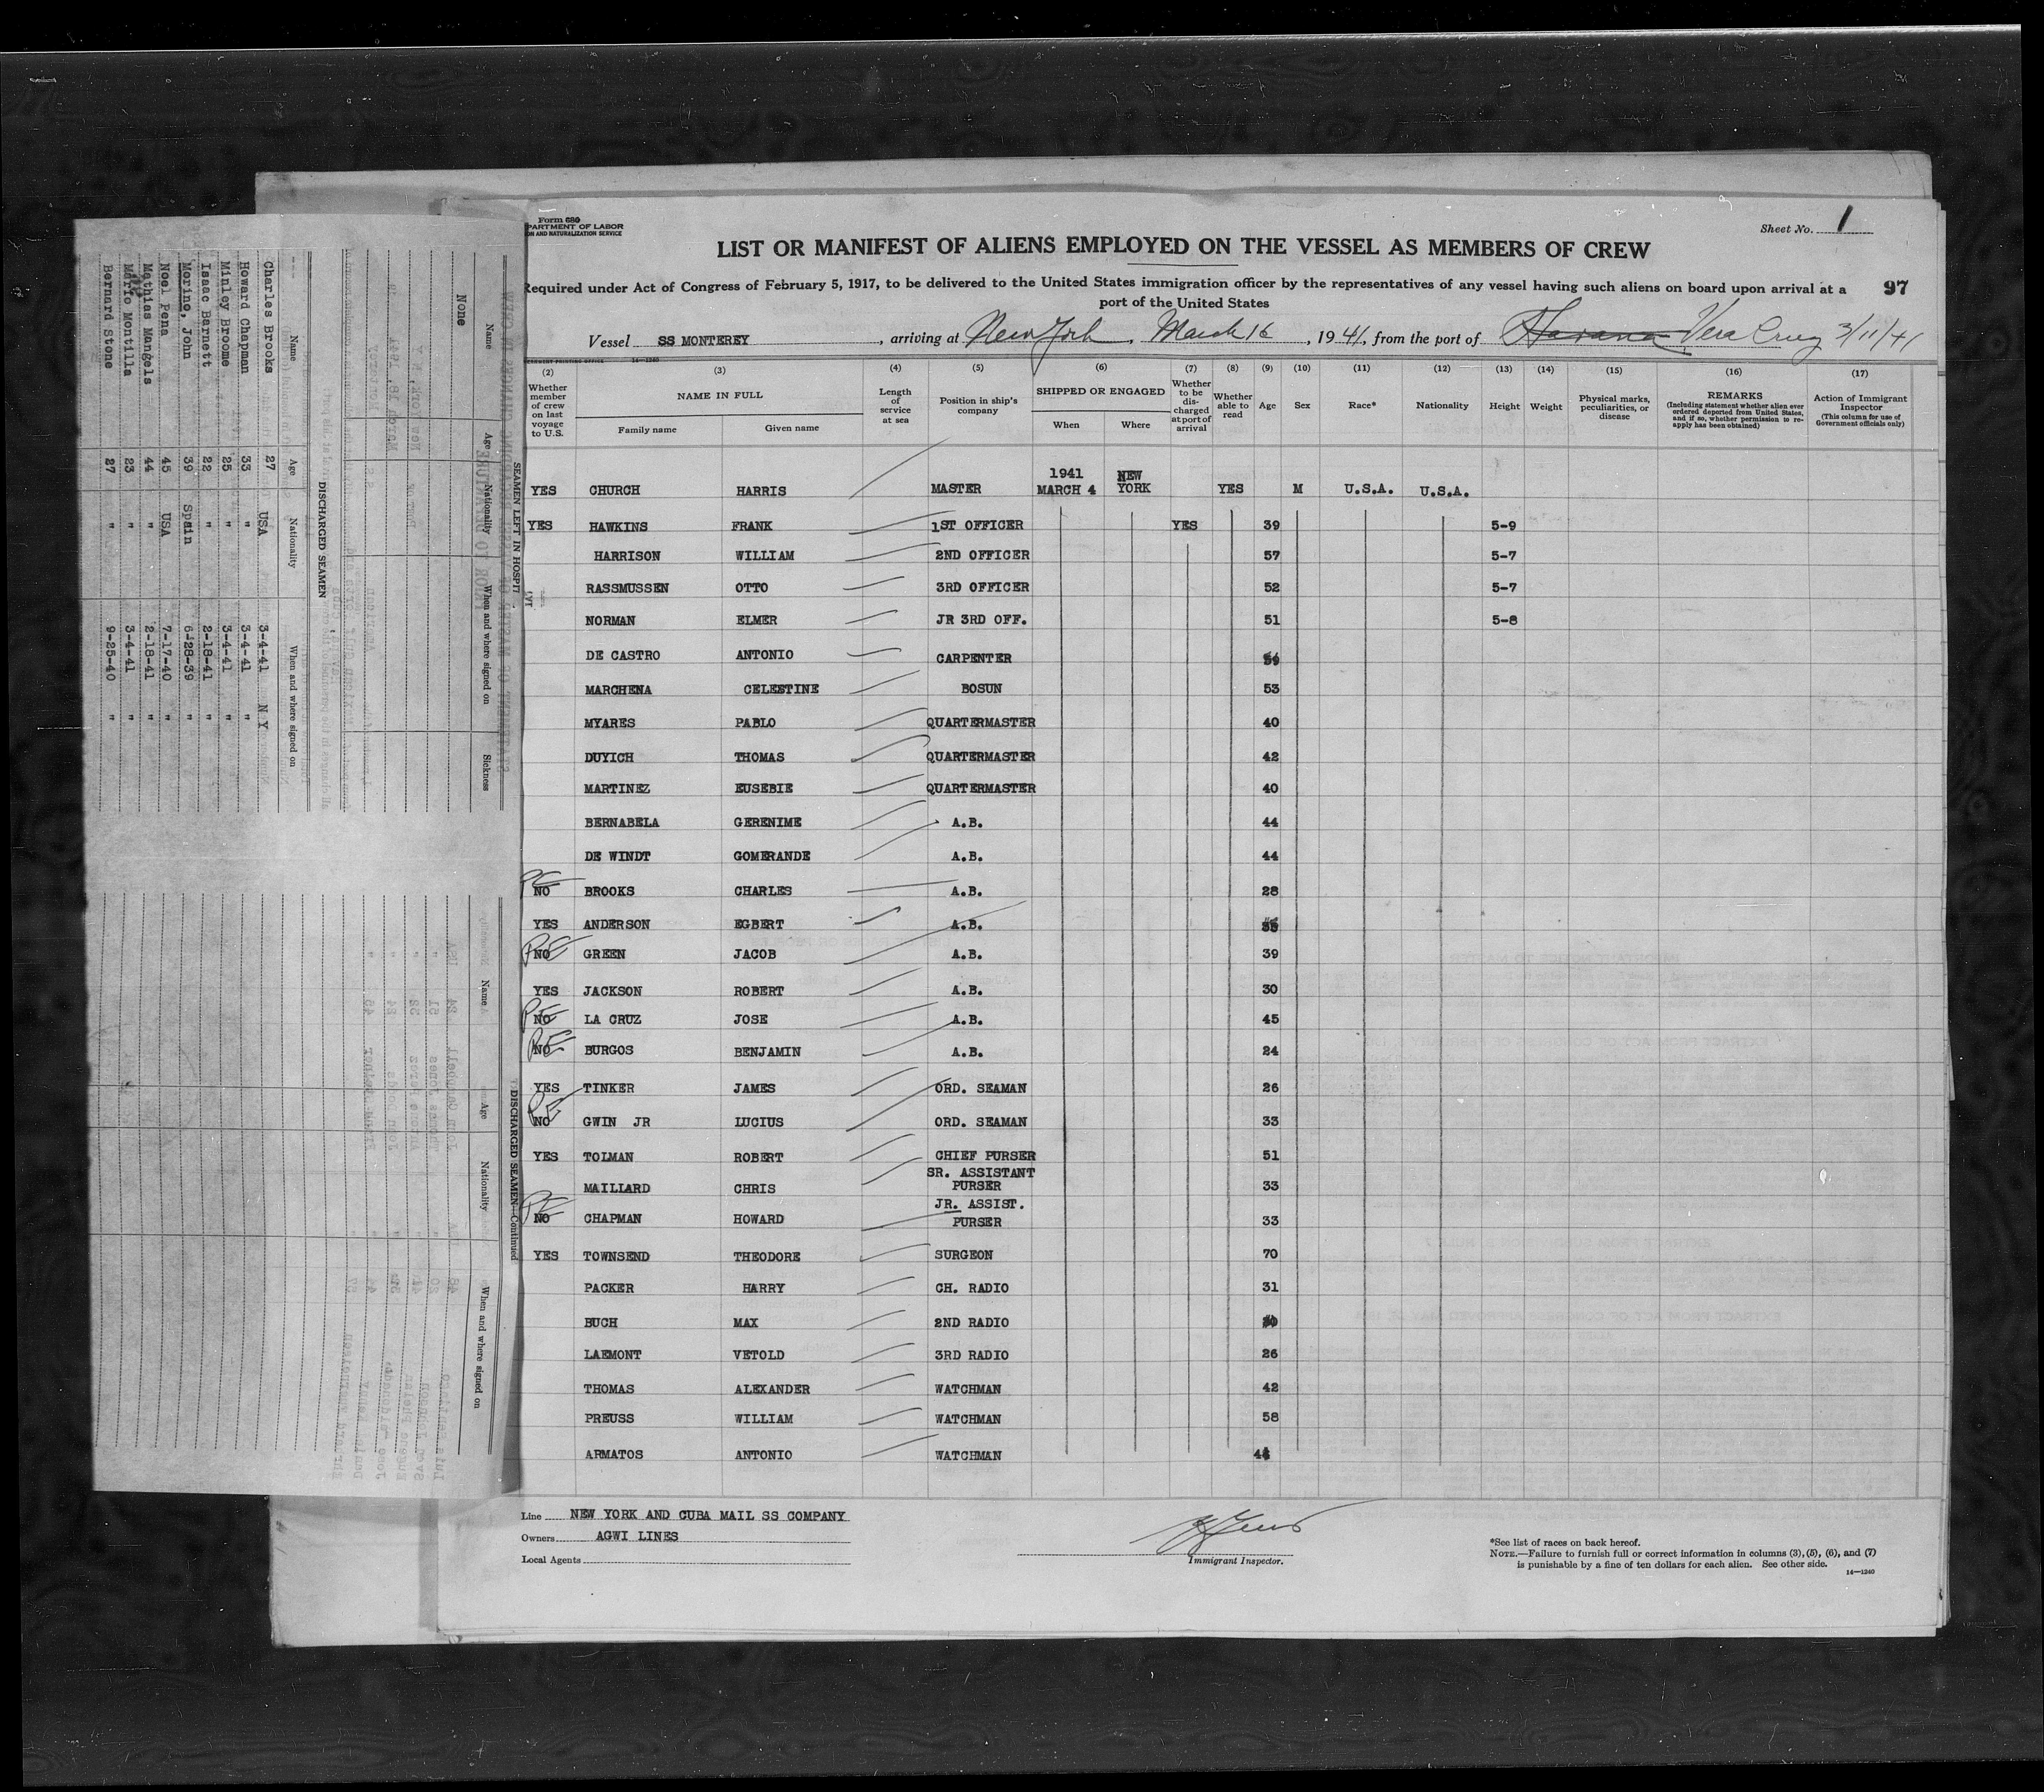 Form 680
PARTMENT OF LABOR
ON AND NATURALIZATION SERVICE
Sheet No. 1
LIST OR MANIFEST OF ALIENS EMPLOYED ON THE VESSEL AS MEMBERS OF CREW
Required under Act of Congress of February 5, 1917, to be delivered to the United States immigration officer by the representatives of any vessel having such aliens on board upon arrival at a
port of the United States
97
Vessel SS MONTEREY, arriving at New York, March 16, 1941, from the port of Havana Vera Cruz 3/11/41
14—1240
(2) (3) (4) (5) (6) (7) (8) (9) (10) (11) (12) (13) (14) (15) (16) (17)
Whether member of crew on last voyage to U.S.
NAME IN FULL
Family name Given name
Length of service at sea
Position in ship's company
SHIPPED OR ENGAGED
When Where
Whether to be discharged at port of arrival
Whether able to read
Age
Sex
Race*
Nationality
Height
Weight
Physical marks, peculiarities, or disease
REMARKS
(Including statement whether alien ever ordered deported from United States, and if so, whether permission to reapply has been obtained)
Action of Immigrant Inspector
(This column for use of Government officials only)
YES CHURCH HARRIS MASTER 1941 MARCH 4 NEW YORK YES M U.S.A. U.S.A.
YES HAWKINS FRANK 1ST OFFICER YES 39 5-9
HARRISON WILLIAM 2ND OFFICER 57 5-7
RASSMUSSEN OTTO 3RD OFFICER 52 5-7
NORMAN ELMER JR 3RD OFF. 51 5-8
DE CASTRO ANTONIO CARPENTER
MARCHENA CELESTINE BOSUN 53
MYARES PABLO QUARTERMASTER 40
DUYICH THOMAS QUARTERMASTER 42
MARTINEZ EUSEBIE QUARTERMASTER 40
BERNABELA GERENIME A.B. 44
DE WINDT GOMERANDE A.B. 44
RE NO BROOKS CHARLES A.B. 28
YES ANDERSON EGBERT A.B.
RE NO GREEN JACOB A.B. 39
YES JACKSON ROBERT A.B. 30
RE NO LA CRUZ JOSE A.B. 45
RE NO BURGOS BENJAMIN A.B. 24
YES TINKER JAMES ORD. SEAMAN 26
RE NO GWIN JR LUCIUS ORD. SEAMAN 33
YES TOLMAN ROBERT CHIEF PURSER 51
MAILLIARD CHRIS SR. ASSISTANT PURSER 33
RE NO CHAPMAN HOWARD JR. ASSIST. PURSER 33
YES TOWNSEND THEODORE SURGEON 70
PACKER HARRY CH. RADIO 31
BUCH MAX 2ND RADIO
LAEMONT VETOLD 3RD RADIO 26
THOMAS ALEXANDER WATCHMAN 42
PREUSS WILLIAM WATCHMAN 58
ARMATOS ANTONIO WATCHMAN
Line NEW YORK AND CUBA MAIL SS COMPANY
Owners AGWI LINES
Local Agents
Immigrant Inspector.
*See list of races on back hereof.
NOTE.—Failure to furnish full or correct information in columns (3), (5), (6), and (7)
is punishable by a fine of ten dollars for each alien. See other side.
14—1240
SEAMEN LEFT IN HOSPIT
Name Age Nationality When and where signed on Sickness
None
DISCHARGED SEAMEN
Name Age Nationality When and where signed on
Charles Brooks 27 USA 3-4-41 N Y
Howard Chapman 33 " 3-4-41 "
Minley Broome 25 " 3-4-41 "
Isaac Barnett 22 " 2-18-41 "
Morino, John 39 Spain 6-28-39 "
Noel Pena 45 USA 7-17-40 "
Mathias Mangels 44 " 2-18-41 "
Mario Montilla 23 " 3-4-41 "
Bernard Stone 27 " 9-25-40 "
DISCHARGED SEAMEN—Continued
Name Age Nationality When and where signed on